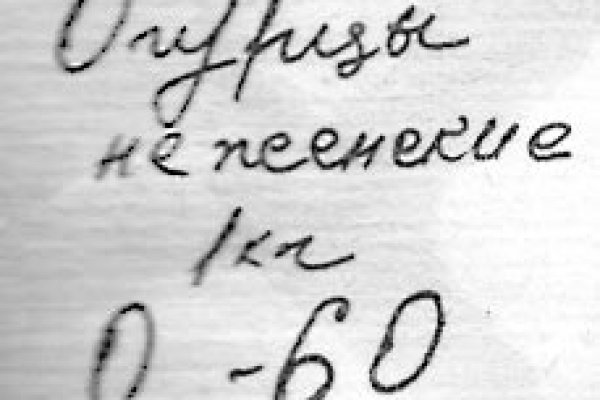 Огурцы
не женские
1кг
0-60